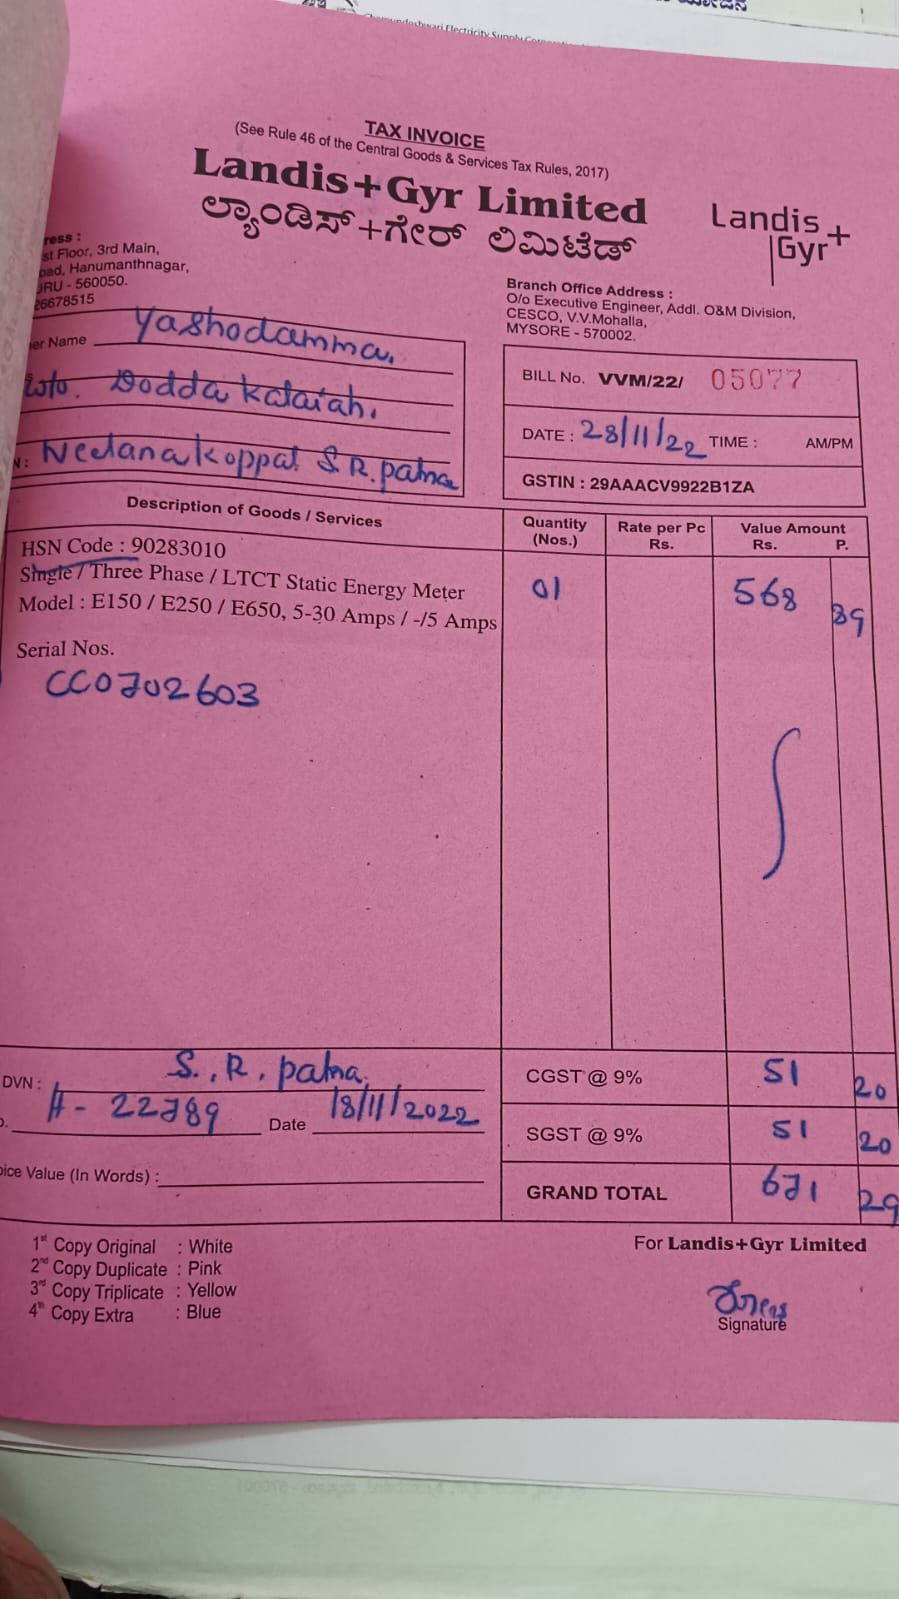 Chamundeshwari Electricity Supply
TAX INVOICE
(See Rule 46 of the Central Goods & Services Tax Rules, 2017)
Landis+Gyr Limited
ಲ್ಯಾಂಡಿಸ್+ಗೇರ್ ಲಿಮಿಟೆಡ್
Landis+
Gyr
ress :
st Floor, 3rd Main,
oad, Hanumanthnagar,
URU - 560050.
26678515
Branch Office Address :
O/o Executive Engineer, Addl. O&M Division,
CESCO, V.V.Mohalla,
MYSORE - 570002.
er Name Yashodamma.
w/o. Dodda Kataiah.
N : Neelanakoppal S R. patna
BILL No. VVM/22/ 05077
DATE : 28/11/22 TIME : AM/PM
GSTIN : 29AAACV9922B1ZA
Description of Goods / Services Quantity (Nos.) Rate per Pc Rs. Value Amount Rs. P.
HSN Code : 90283010
Single / Three Phase / LTCT Static Energy Meter 01 568 89
Model : E150 / E250 / E650, 5-30 Amps / -/5 Amps
Serial Nos.
CC0702603
DVN : S., R, patna.
A - 22789 Date 18/11/2022
oice Value (In Words) :
CGST @ 9% 51 20
SGST @ 9% 51 20
GRAND TOTAL 671 29
1st Copy Original : White
2nd Copy Duplicate : Pink
3rd Copy Triplicate : Yellow
4th Copy Extra : Blue
For Landis+Gyr Limited
Signature